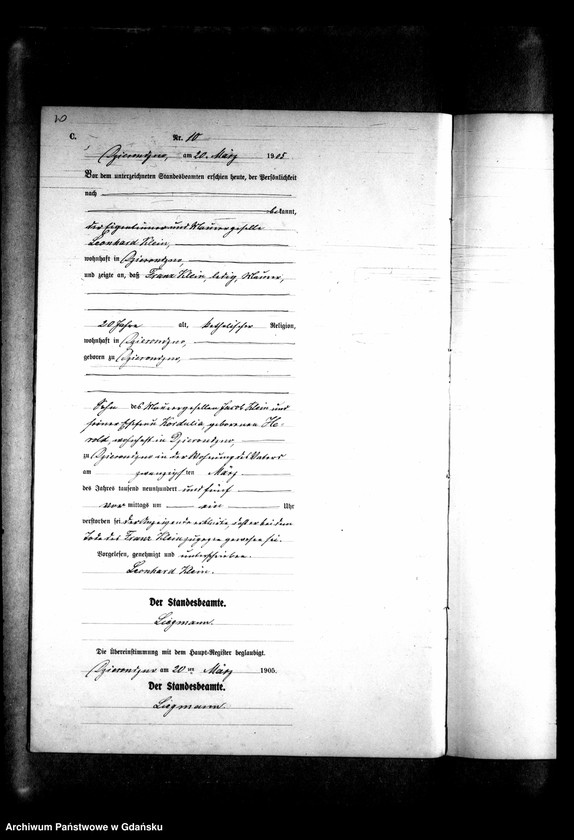 10
C.
Nr. 10
Dzierondzno, am 20. März 1905
Vor dem unterzeichneten Standesbeamten erschien heute, der Persönlichkeit
nach
bekannt,
der Eigentümer und Maurergeselle
Leonhard Klein,
wohnhaft in Dzierondzno,
und zeigte an, daß Franz Klein, ledig, Maurer,
20 Jahre alt, katholischer Religion,
wohnhaft in Dzierondzno,
geboren zu Dzierondzno,
Sohn des Maurergesellen Jacob Klein und
seiner Ehefrau Kordulia, geborenen He-
rold, wohnhaft in Dzierondzno,
zu Dzierondzno in der Wohnung des Vaters
am zwanzigsten März
des Jahres tausend neunhundert und fünf
vor mittags um ein Uhr
verstorben sei. Der Anzeigende erklärte, daß er bei dem
Tode des Franz Klein zugegen gewesen sei.
Vorgelesen, genehmigt und unterschrieben.
Leonhard Klein.
Der Standesbeamte.
Liegmann.
Die Übereinstimmung mit dem Haupt-Register beglaubigt.
Dzierondzno am 20ten März 1905.
Der Standesbeamte.
Liegmann.
Archiwum Państwowe w Gdańsku